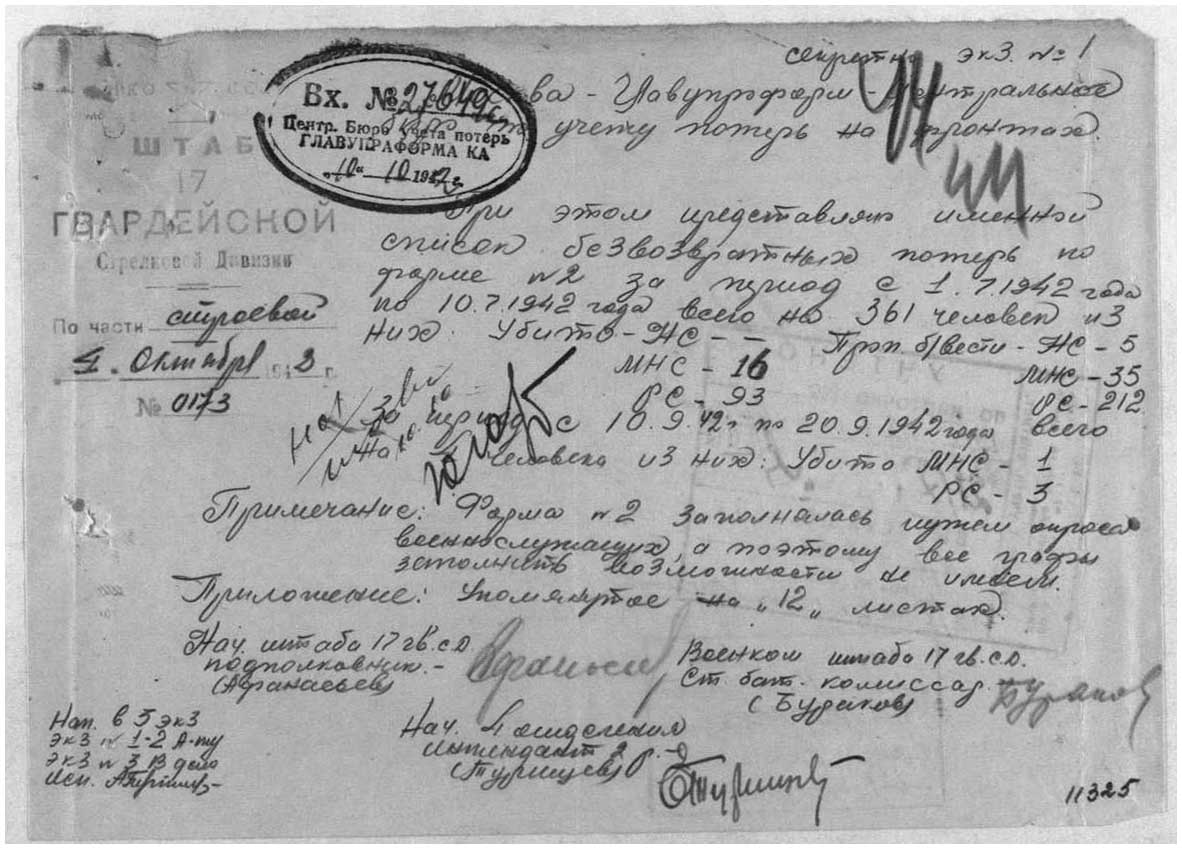 секретно экз. № 1
Вх. № 27649
Центр. Бюро учета потерь
ГЛАВУПРАФОРМА КА
"10" 10 1942 г.
ва - Главупрформ - центральное
учету потерь на фронтах.
ШТАБ
17
ГВАРДЕЙСКОЙ
Стрелковой Дивизии
По части строевой
4. Октября 1942 г.
№ 0173
При этом представляю именной
список безвозвратных потерь по
форме №2 за период с 1.7.1942 года
по 10.7.1942 года всего на 361 человек из
них: Убито - НС - - Проп. б/вести - НС - 5
МНС - 16 МНС - 35
РС - 93 РС - 212
За период с 10.9.42г. по 20.9.1942 года всего
на человека из них: Убито МНС - 1
РС - 3
Примечание: Форма №2 заполнялась путем опроса
военнослужащих, а поэтому все графы
заполнить возможности не имели.
Приложение: Упомянутое на "12" листах.
Нач. штаба 17 гв.с.д.
подполковник -
(Афанасьев)
Военком штаба 17 гв.с.д.
Ст. бат. комиссар
(Бураков)
Нач. 4 отделения
интендант 2 р.
(Турищев)
Нап. в 3 экз
Экз № 1-2 А-ту
Экз № 3 В дело
Исп.
11325